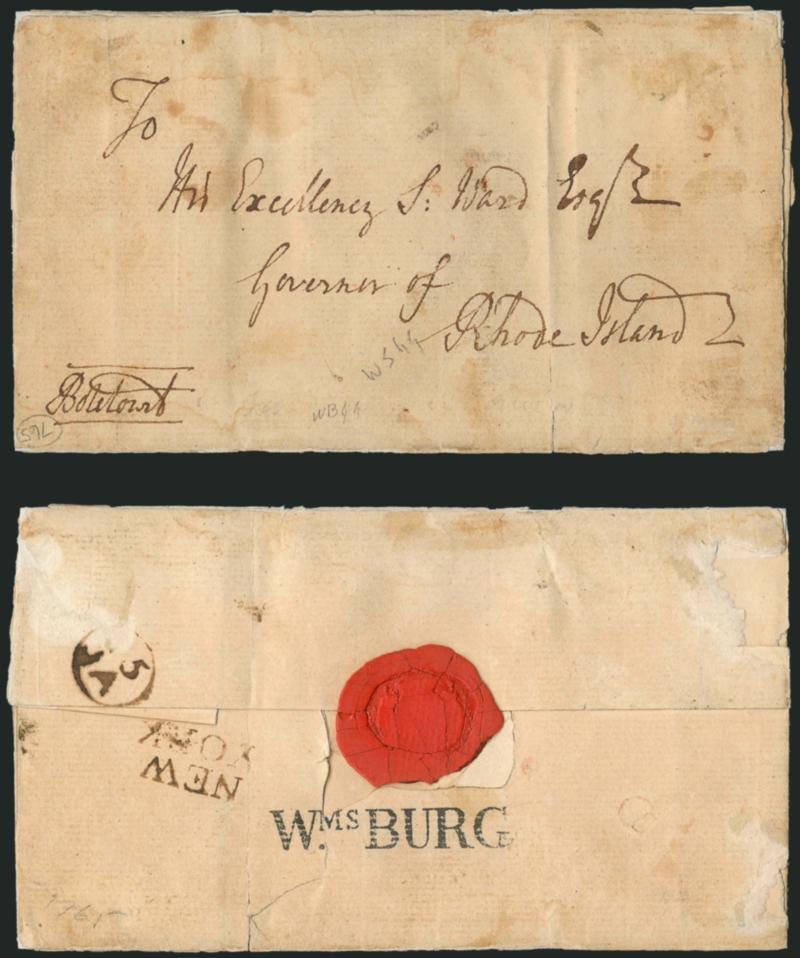 To
His Excellency S: Ward Esqr
Governor of
Rhode Island
Botetourt
WS44
WB44
59L
5
IA
NEW
YORK
W.MS BURG